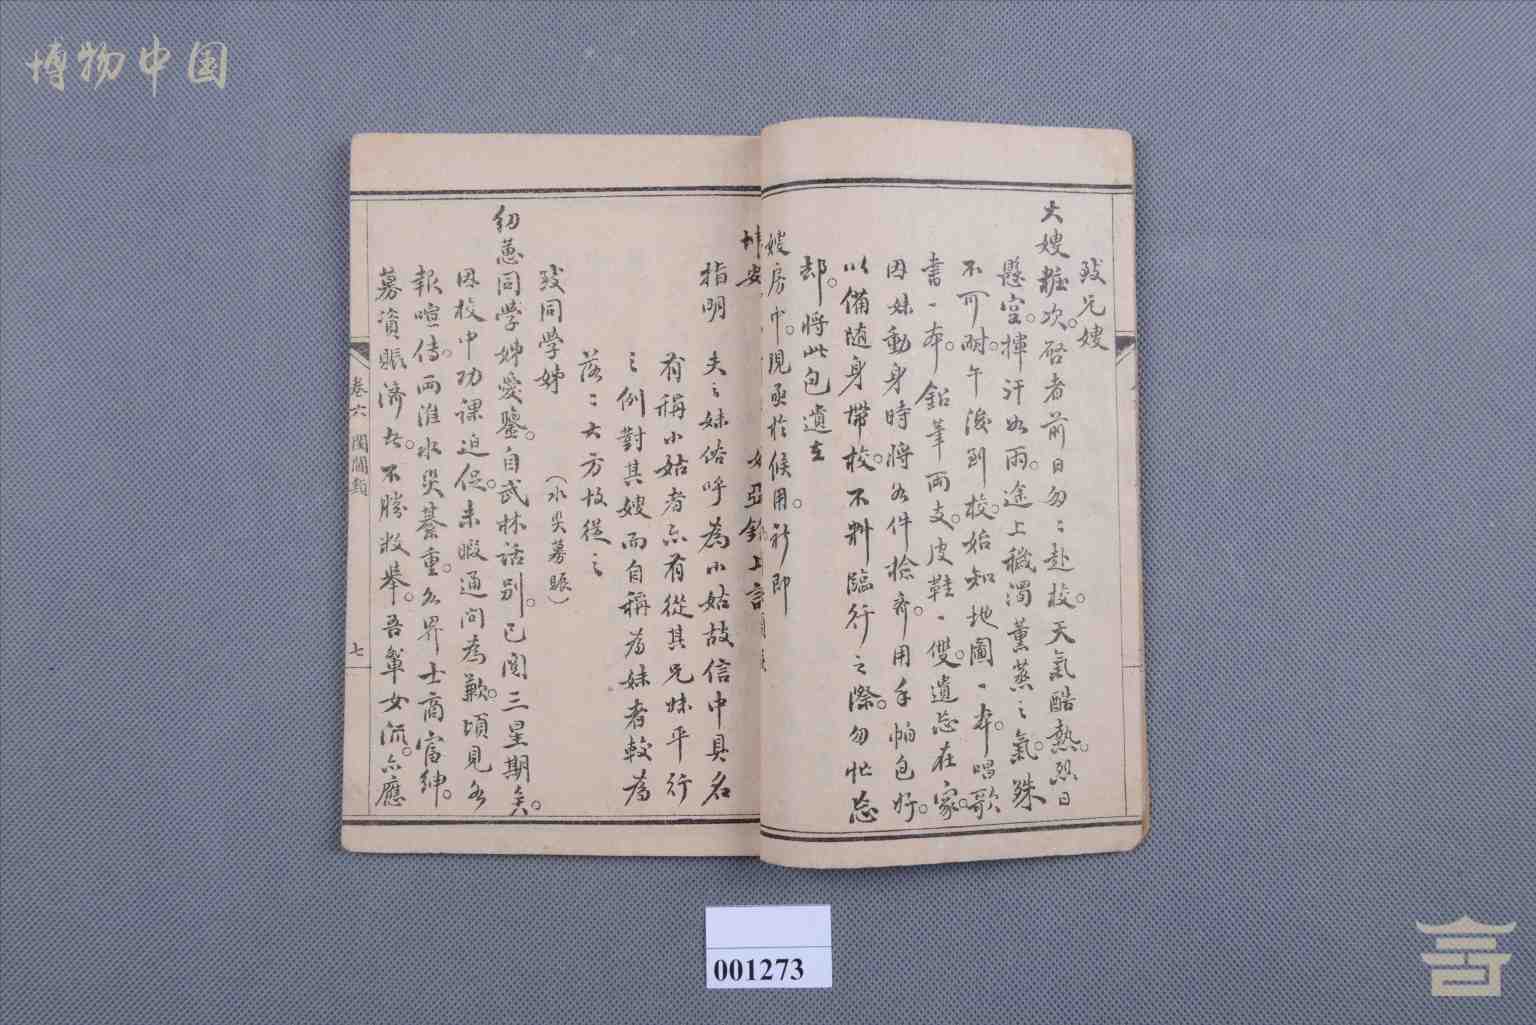 博物中国
致兄嫂
大嫂粧次。啓者前日匆〻赴校。天氣酷熱。烈日
懸空。揮汗如雨。途上穢濁薰蒸之氣。殊
不可耐。午後到校。始知地圖一本。唱歌
書一本。鉛筆兩支。皮鞋一雙。遺忘在家。
因妹動身時將各件檢齊。用手帕包好。
以備隨身帶校。不料臨行之際。匆忙忘
却。將此包遺在
嫂房中。現亟於候用。祈即
妹安
上言
指明 夫之妹俗呼為小姑故信中具名
有稱小姑者亦有從其兄妹平行
之例對其嫂而自稱為妹者較為
落〻大方故從之
致同學姊 （水災募賑）
紉蕙同學姊愛鑒。自武林話別。已閱三星期矣。
因校中功課迫促。未暇通問為歉。頃見各
報喧傳。兩淮水災綦重。各界士商富紳。
募資賑濟者。不勝枚舉。吾輩女流。亦應
卷六 閨閣類 七
001273